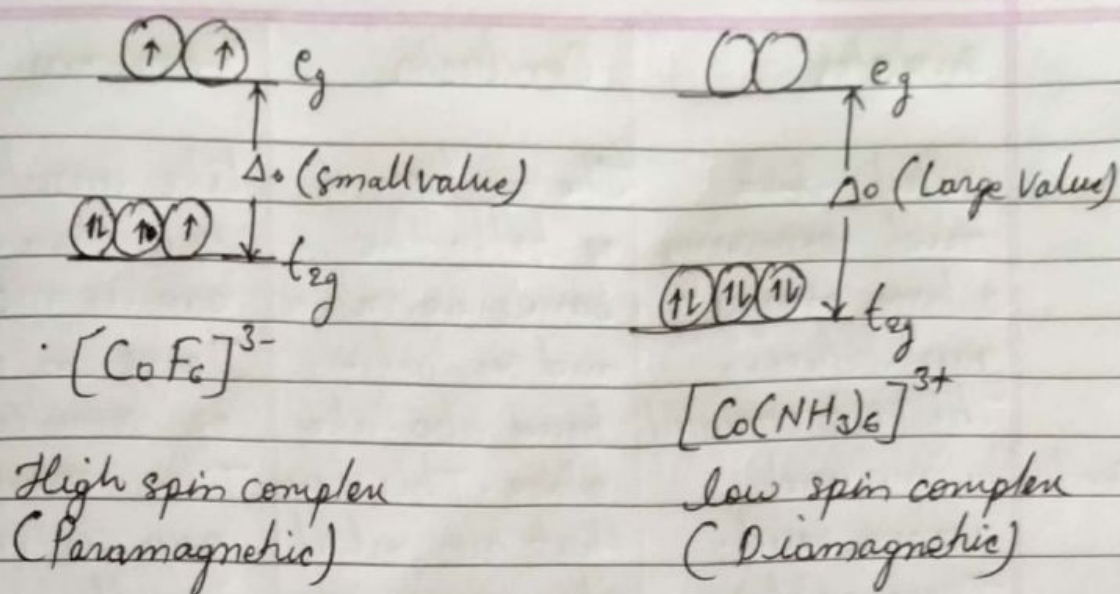 ↑ ↑ eg
Δ₀ (small value)
↑↓ ↑ ↑ t₂g
[CoF₆]³⁻
High spin complex
(Paramagnetic)
eg
Δ₀ (Large Value)
↑↓ ↑↓ ↑↓ t₂g
[Co(NH₃)₆]³⁺
low spin complex
(Diamagnetic)